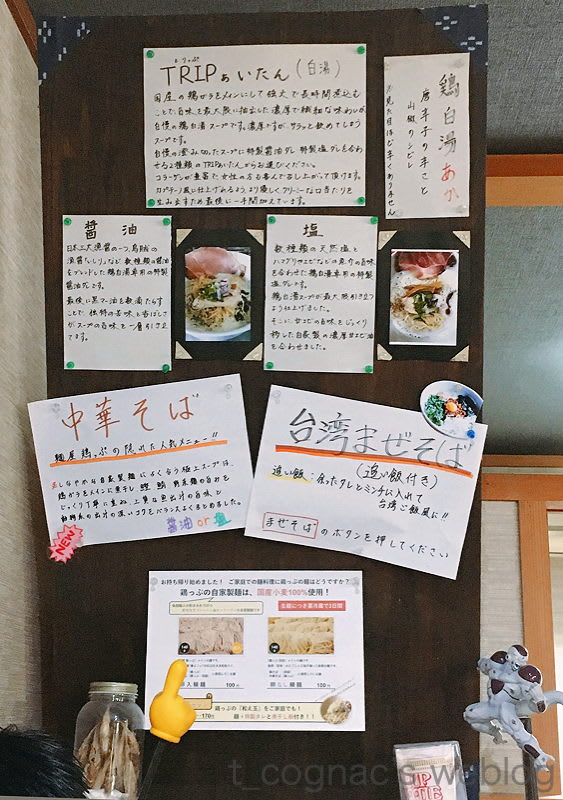 とりっぷ
TRIPぁいたん(白湯)
国産の鶏ガラをメインにして強火で長時間煮込む
ことで旨味を最大限に抽出した濃厚で繊細な味わいが
自慢の鶏白湯スープです。濃厚ですが、サラッと飲めてしまう
スープです。
自慢の澄み切ったスープに特製醤油ダレ 特製塩ダレを合わ
せる2種類のTRIPぁいたんからお選びください。
コラーゲンが豊富で、女性の方も喜んで召し上がって頂けます。
カプチーノ風に仕上げれるよう優しくクリーミーな口当たりを
生み出すため最後に一手間加えています。
鶏白湯 あか
唐辛子の辛さと
山椒のシビレ
※見た目ほど辛くありません
醤油
日本三大魚醤の一つ、能登の
魚醤いしりなど数種類の醤油
をブレンドした鶏白湯専用の特製
醤油ダレです。
最後に黒マー油を数滴たらす
ことで独特の苦味と香ばしさ
がスープの旨味を一層引き立
てます。
塩
数種類の天然塩と
ハマグリやエビなどの魚介の旨味
を合わせた鶏白湯専用の特製
塩ダレです。
鶏白湯スープが最大限引き立つ
よう仕上げました。
そこに甘エビの旨味をじっくり
移した自家製の濃厚甘エビ油
を合わせました。
中華そば
麺屋 鶏っぷの隠れた人気メニュー!!
しなやかな自家製麺によく合う極上スープは、
鶏ガラをメインに煮干し 鰹節 野菜類の旨みを
じっくり丁寧に重ね、上質な魚出汁の旨味と
動物系の出汁の深いコクをバランスよくまとめました。
醤油 or 塩
NEW
台湾まぜそば
(追い飯付き)
追い飯:余ったタレとミンチに入れて
台湾ご飯風に!!
まぜそばのボタンを押してください
お持ち帰り始めました! ご家庭での麺料理に鶏っぷの麺はどうですか?
鶏っぷの自家製麺は、国産小麦100%使用!
生麺につき要冷蔵で3日間
100円
卵なし細麺 100円
鶏っぷの「和え玉」をご家庭でも!
170円
麺+特製タレと煮干し粉付き!!
t_cognac's weblog